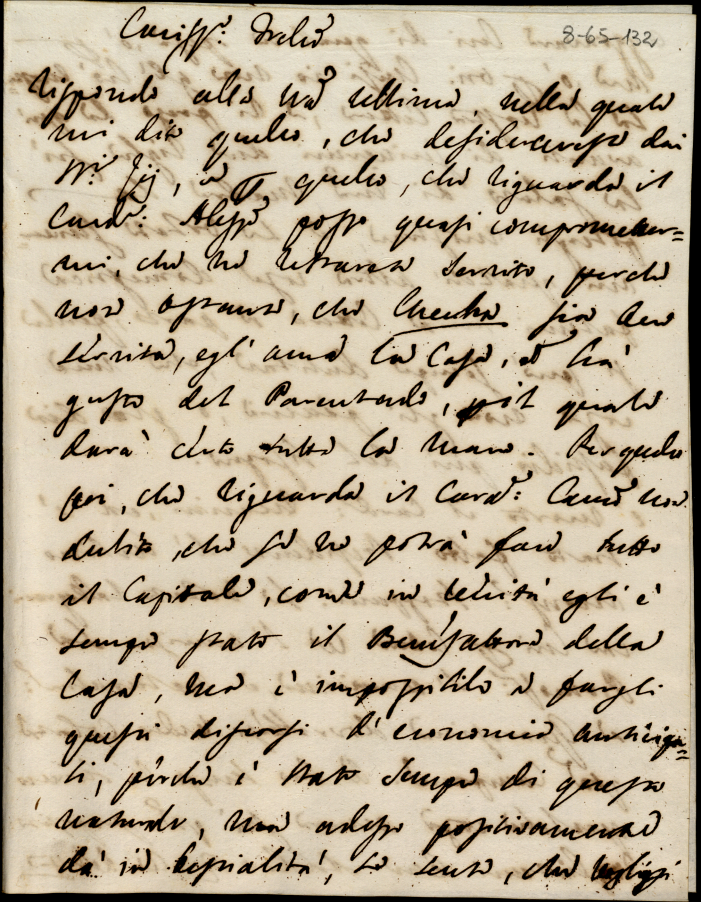 8-65-132
Cariss.º Frelo
Rispondo alla vrã ultima, nella quale
mi dite quello, che desiderereste dai
quello, che riguarda il
Card.e: Aless.º posso quasi comprometer=
mi, che ne resterete servito, perche
non ostante, che Checcha sia ben
servita, egl' ama la Casa, ed hà
gusto del Parentado, pil quale
darà certo tutta la mano. Per quello
poi, che riguarda il Card.e: Cam.º non
dubito, che se ne potrà fare tutto
il Capitale, come in verità egli è
sempre stato il Benefattore della
Casa, ma è impossibile a fargli
questi discorsi d'economie anticipa=
ti, perche è stato sempre di questo
naturale, ma adesso positivamente
dà in bestialità, se sente, che